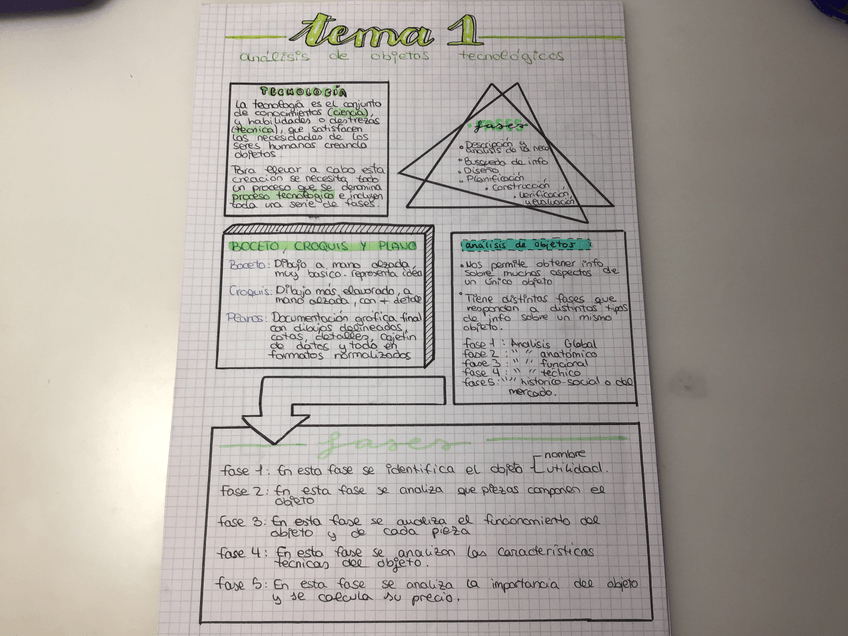 tema 1
análisis de objetos tecnológicos
TECNOLOGÍA
La tecnología es el conjunto
de conocimientos (ciencia),
y habilidades o destrezas
(técnica), que satisfacen
las necesidades de los
seres humanos creando
objetos.
Para llevar a cabo esta
creación se necesita todo
un proceso que se denomina
proceso tecnológico e incluyen
toda una serie de fases.
fases
• Descripción y
análisis de la nece
• Busqueda de info
• Diseño
• Planificación
• Construcción
• Verificación
y evaluación
BOCETO, CROQUIS Y PLANO
Boceto: Dibujo a mano alzada,
muy basico. representa idea
Croquis: Dibujo más elavorado, a
mano alzada, con + detalle
Planos: Documentación grafica final
con dibujos delineados,
cotas, detalles, cajetín
de datos y todo en
formatos normalizados
análisis de objetos
• Nos permite obtener info
sobre muchos aspectos de
un único objeto
• Tiene distintas fases que
responden a distintos tipos
de info sobre un mismo
objeto.
fase 1 : Analisis Global
fase 2 : " " anatómico
fase 3 : " " funcional
fase 4 : " " técnico
fase 5 : " " histórico-social o del
mercado.
fases
fase 1: En esta fase se identifica el objeto [ nombre
utilidad.
Fase 2: En esta fase se analiza que piezas componen el
objeto
fase 3: En esta fase se analiza el funcionamiento del
objeto y de cada pieza
fase 4: En esta fase se analizan las características
técnicas del objeto.
fase 5: En esta fase se analiza la importancia del objeto
y se calcula su precio.